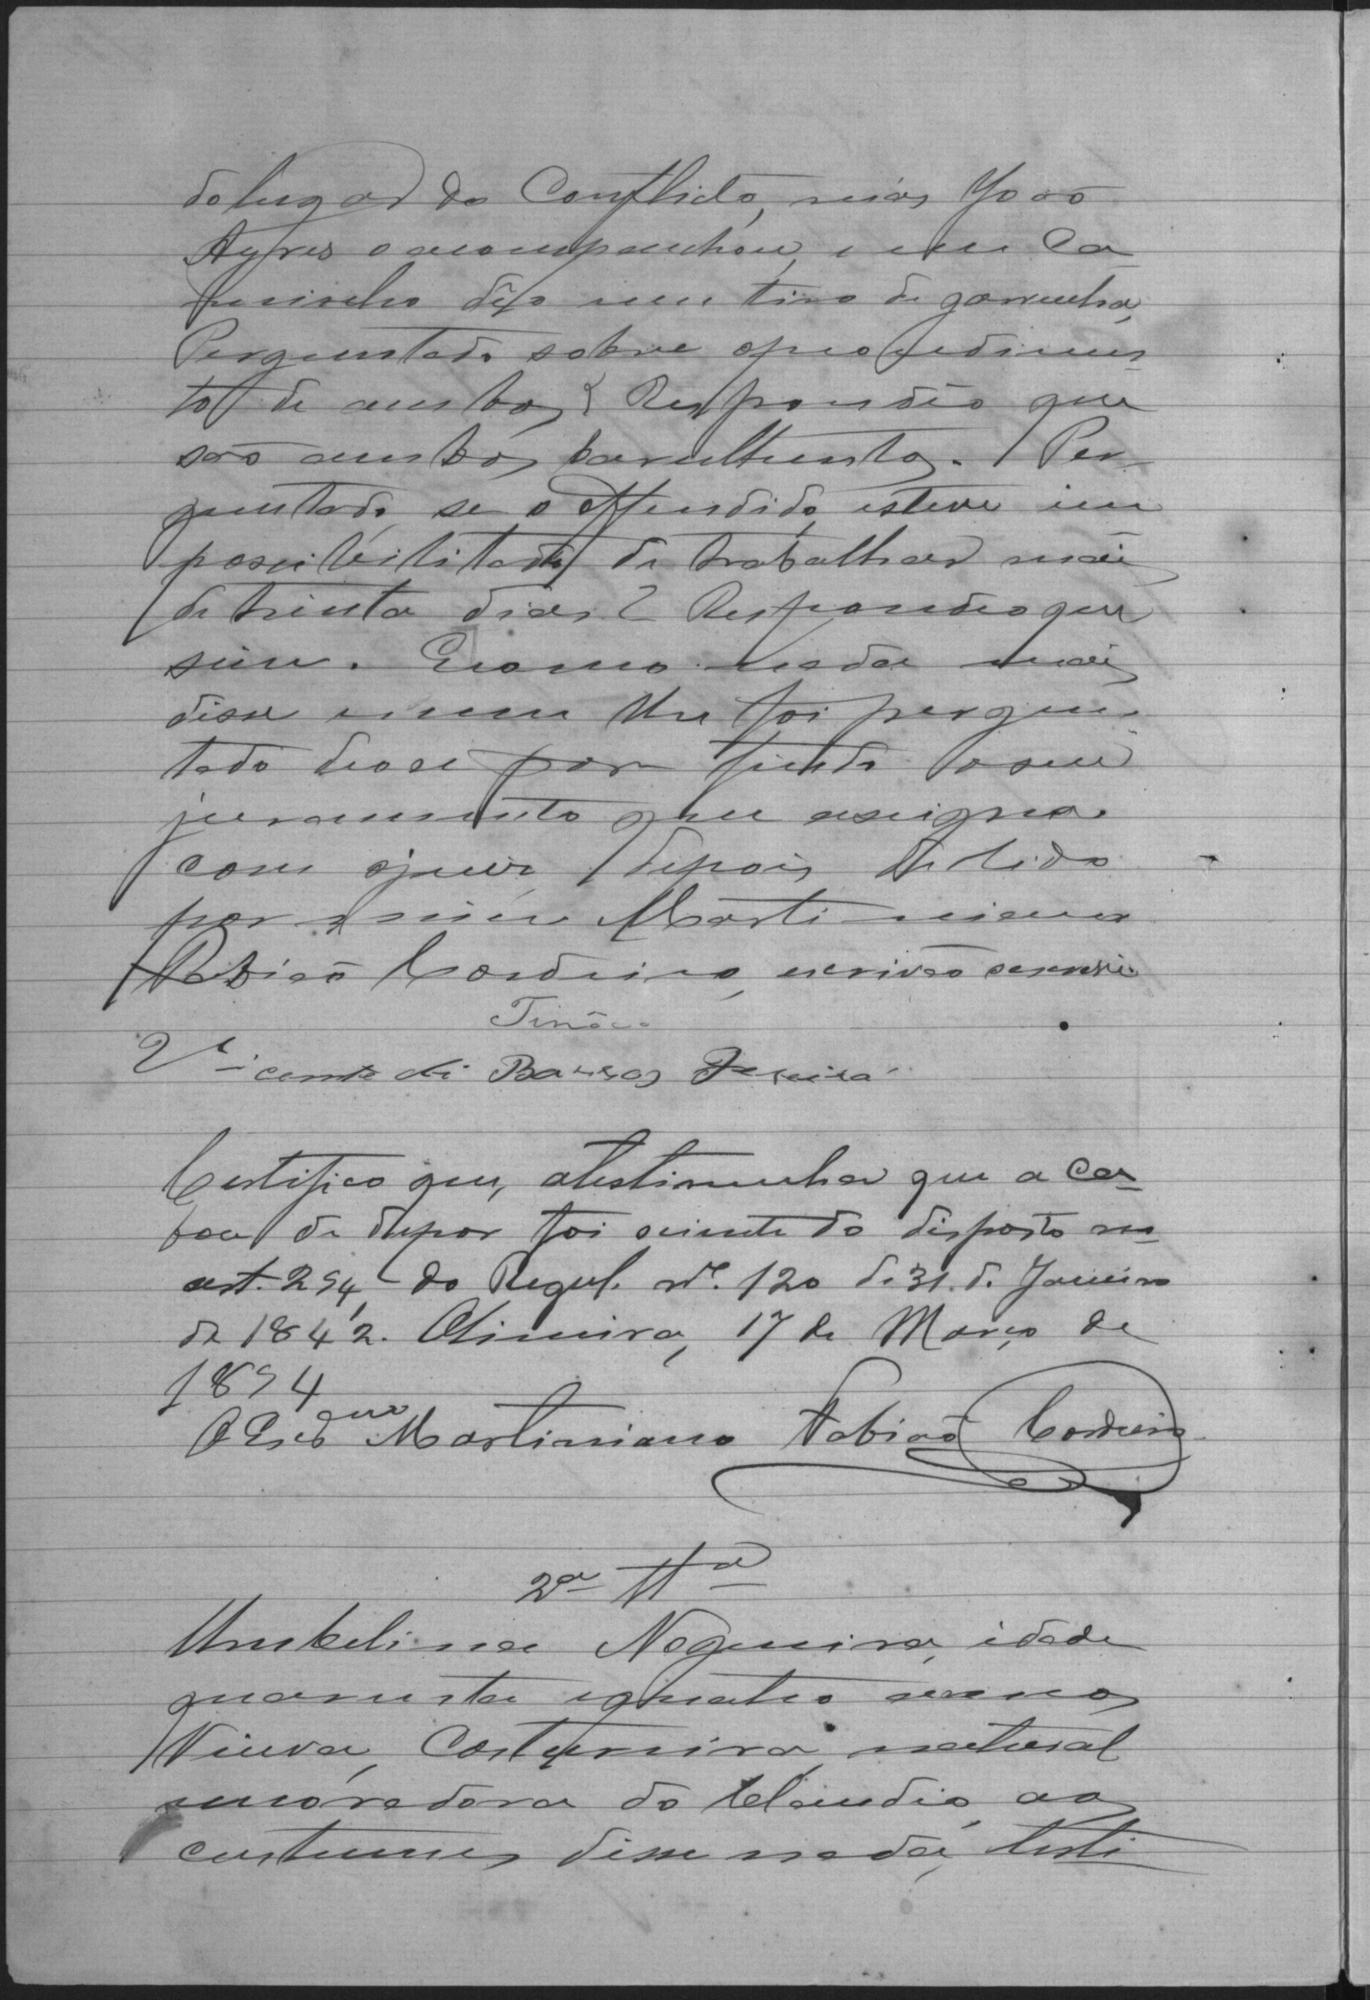 do lugar do Conflicto, mas João
Ayres o acompanhou, e um Ca
pinicho deo um tiro de garrucha,
Perguntado sobre oprocedimen
to de ambos? Respondeo que
são ambos barulhentos. Per
guntado se o offendido esteve im
possibilitado de trabalhar mais
de trinta dias? Respondeo que
sim. Ecomo nada mais
disse enem lhe foi pergun
tado deose por findo o seu
juramento que assigna
com ojuiz depois de lido
por mim Martiniano
Fabião Cordeiro, escrivão oescrevi
Tinôco
Vicente de Barros Pereira
Certifico que, atestimunha que aca
bou de depor foi sciente do disposto no
art. 294, do Regul. nº. 120 de 31 de Janeiro
de 1842. Oliveira, 17 de Março de
1894
O Escrivam Martiniano Fabião Cordeiro
2ª Ttª
Umbelina Nogueira, idade
quarenta equatro annos,
Viuva, Costureira, natural
moradora do Claudio, aos
costumes disse nada, testi